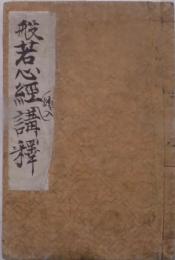 般若心經講釋